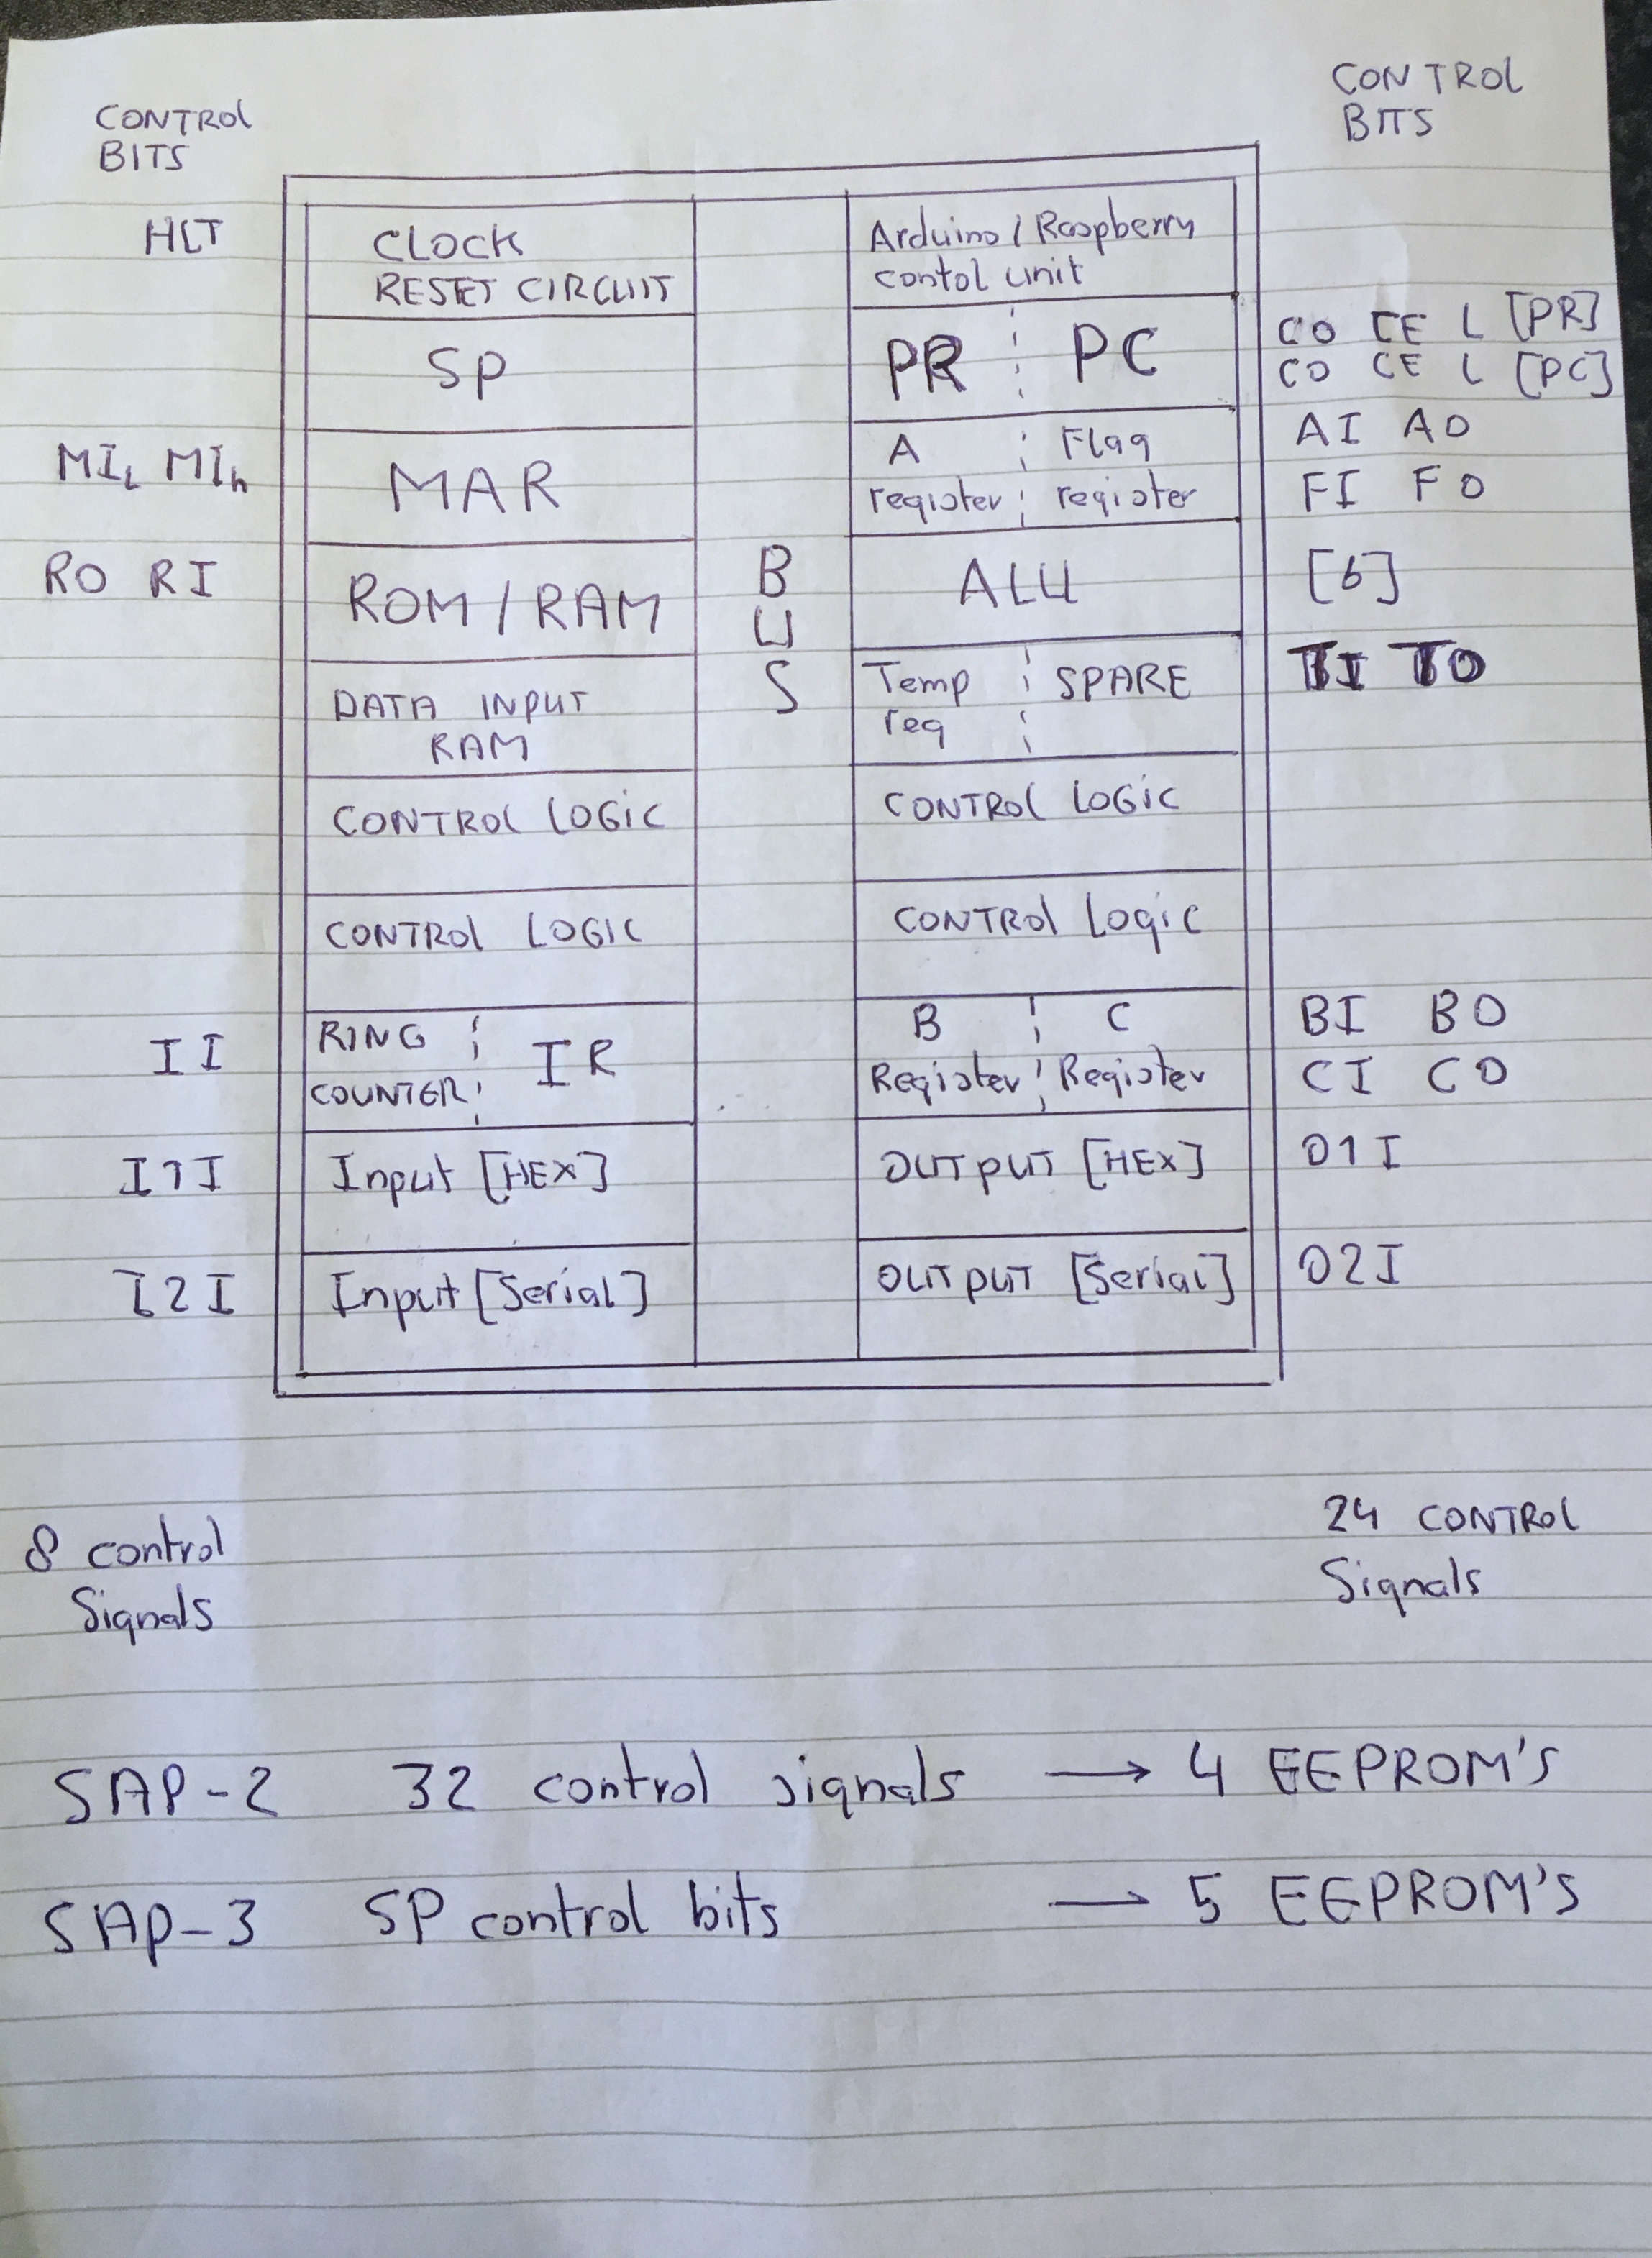 CONTROL
BITS
CONTROL
BITS
HLT
CLOCK
RESET CIRCUIT
Arduino / Raspberry
contol unit
SP
PR PC
CO CE L [PR]
CO CE L [PC]
MIL MIh
MAR
A Flag
register register
AI AO
FI FO
RO RI
ROM / RAM
B
U
S
ALU
[6]
DATA INPUT
RAM
Temp SPARE
reg
TI TO
CONTROL LOGIC
CONTROL LOGIC
CONTROL LOGIC
CONTROL Logic
II
RING IR
COUNTER
B C
Register Register
BI BO
CI CO
I1I
Input [HEX]
OUTPUT [HEX]
O1I
I2I
Input [Serial]
OUTPUT [Serial]
O2I
8 control
Signals
24 CONTROL
Signals
SAP-2 32 control signals → 4 EEPROM'S
SAP-3 SP control bits → 5 EEPROM'S